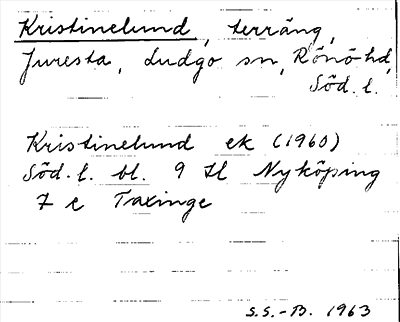 Kristinelund, terräng,
Juresta, Ludgo sn, Rönö hd,
Söd. l.
Kristinelund ek (1960)
Söd. l. bl. 9 H Nyköping
7 c Taxinge
S.S.-B. 1963